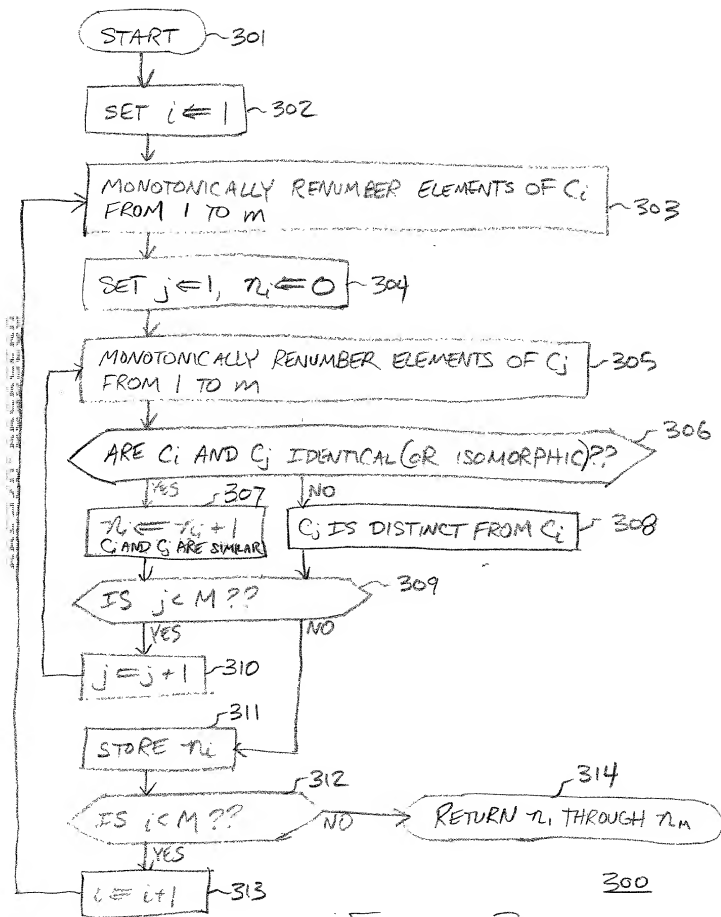 START 301
SET i ⇐ 1 302
MONOTONICALLY RENUMBER ELEMENTS OF Ci
FROM 1 TO m 303
SET j ⇐ 1, ni ⇐ 0 304
MONOTONICALLY RENUMBER ELEMENTS OF Cj 305
FROM 1 TO m
306
ARE Ci AND Cj IDENTICAL (OR ISOMORPHIC)??
YES 307 NO
ni ⇐ ni + 1
Ci AND Cj ARE SIMILAR
Cj IS DISTINCT FROM Ci 308
309
IS j < M ??
YES NO
j ⇐ j + 1 310
311
STORE ni
312 314
IS i < M ?? NO RETURN n1 THROUGH nM
YES
i ⇐ i + 1 313
300